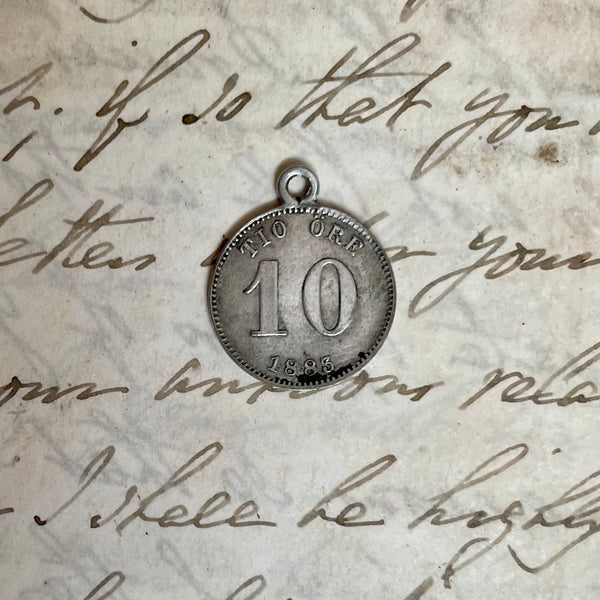 if is that you
TIO ÖRE
letter your
10
1883
our anxious rela
I shall be highly